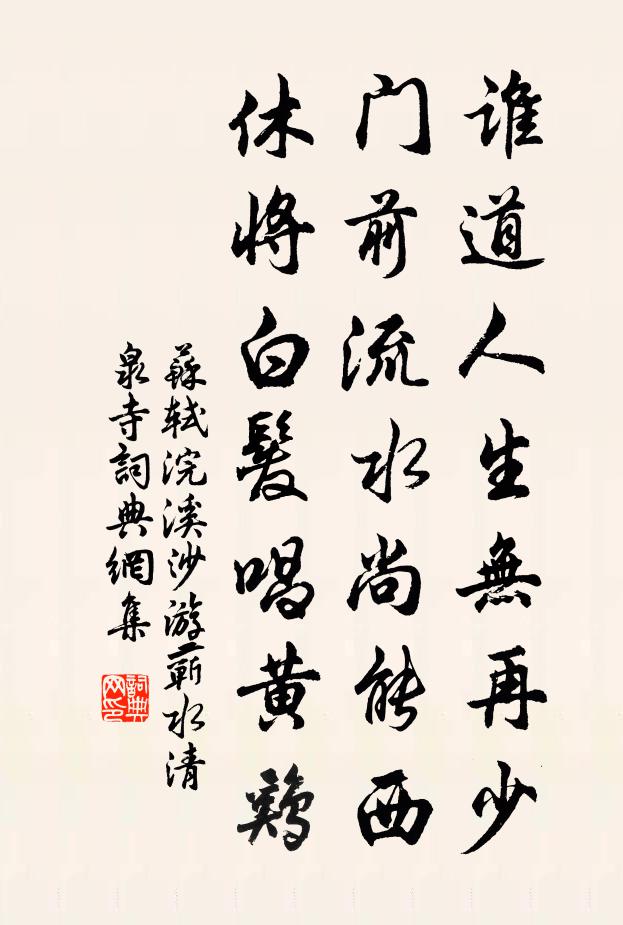 谁道人生無再少
门前流水尚能西
休將白髮唱黄鷄
蘇軾浣溪沙游蘄水清
泉寺詞典網集
詞典网印